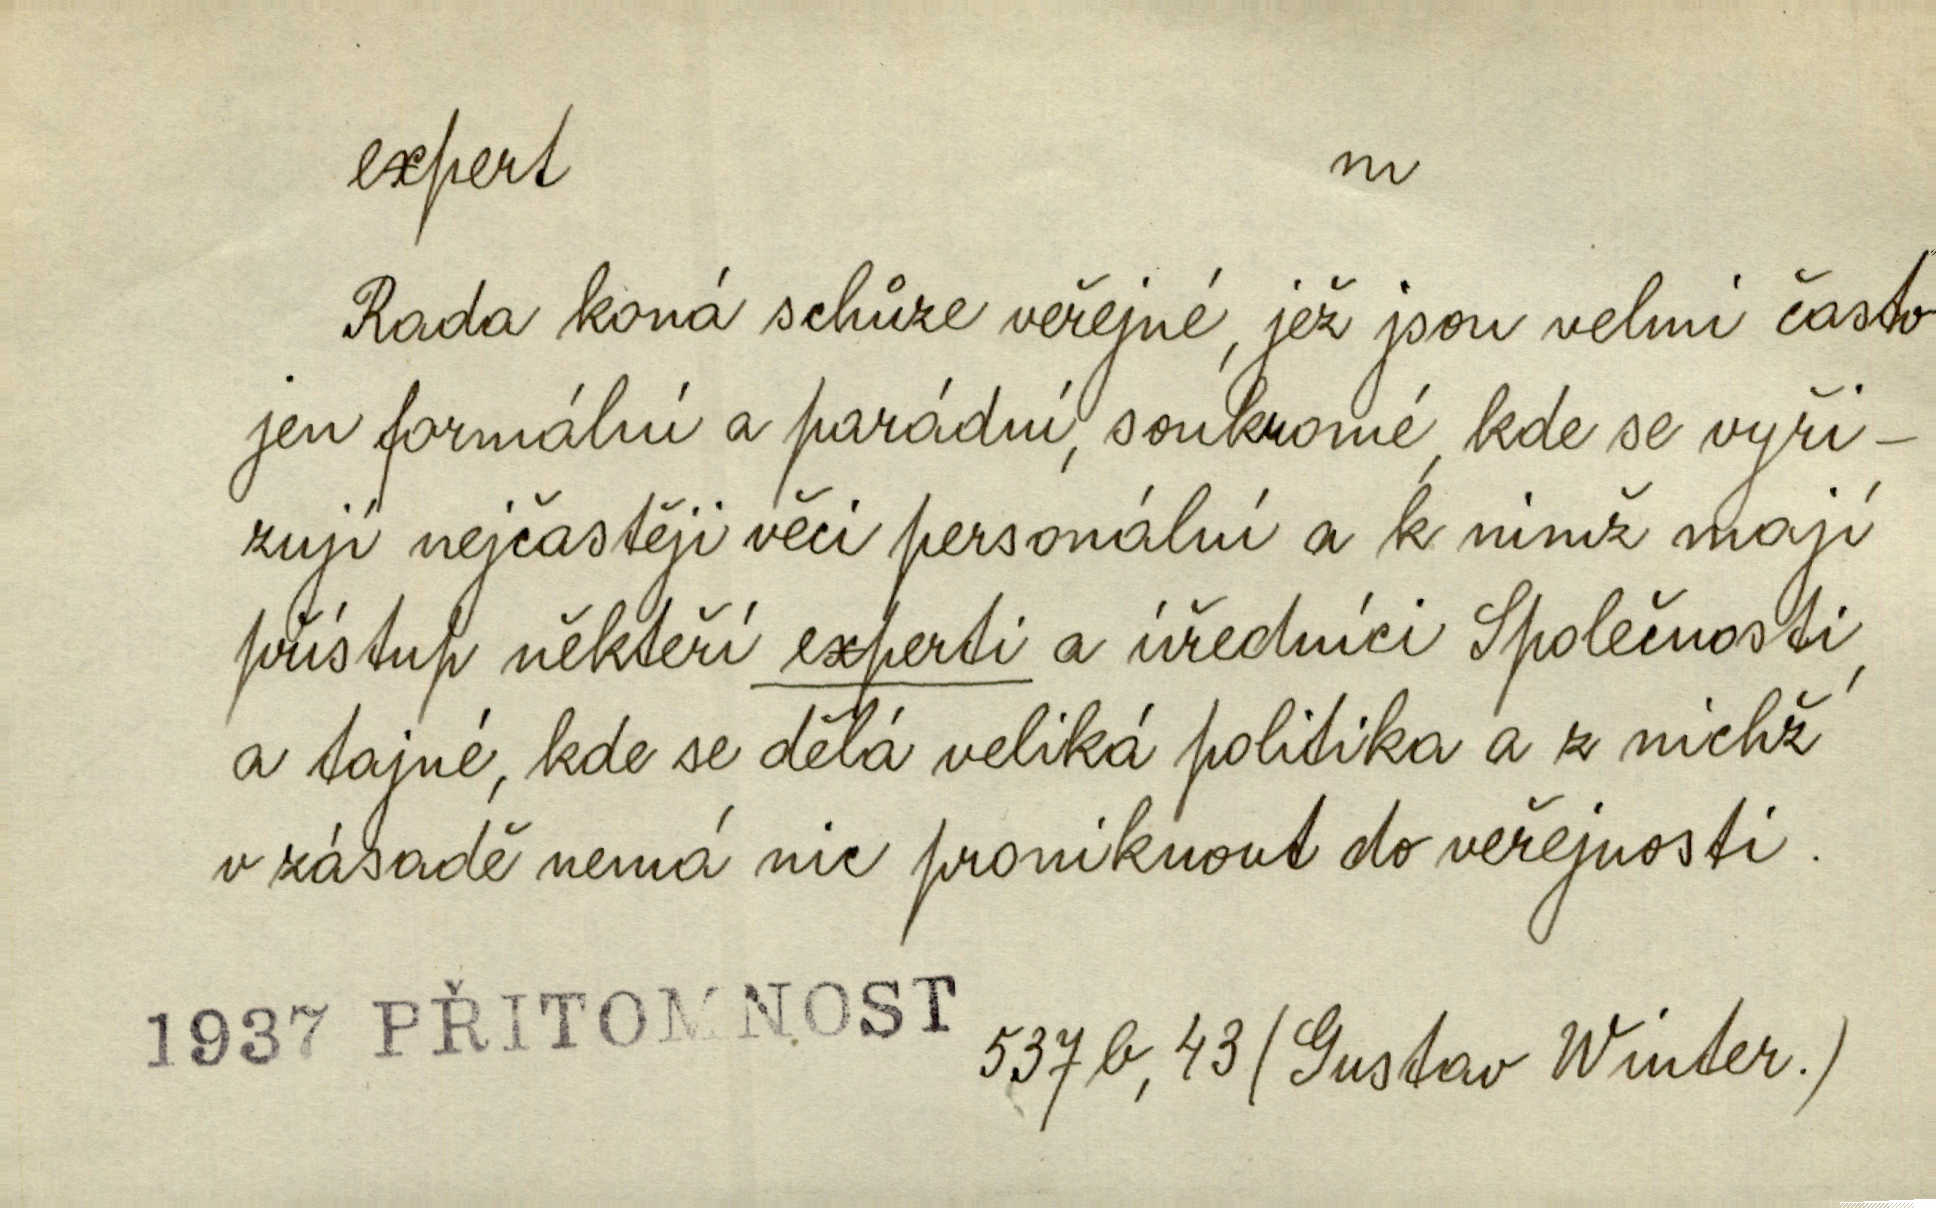 expert m
Rada koná schůze veřejné, jež jsou velmi často
jen formální a parádní, soukromé, kde se vyři-
zují nejčastěji věci personální a k nimž mají
přístup někteří experti a úředníci Společnosti,
a tajné, kde se dělá veliká politika a z nichž
v zásadě nemá nic proniknout do veřejnosti.
1937 PŘITOMNOST 537b, 43 (Gustav Winter.)